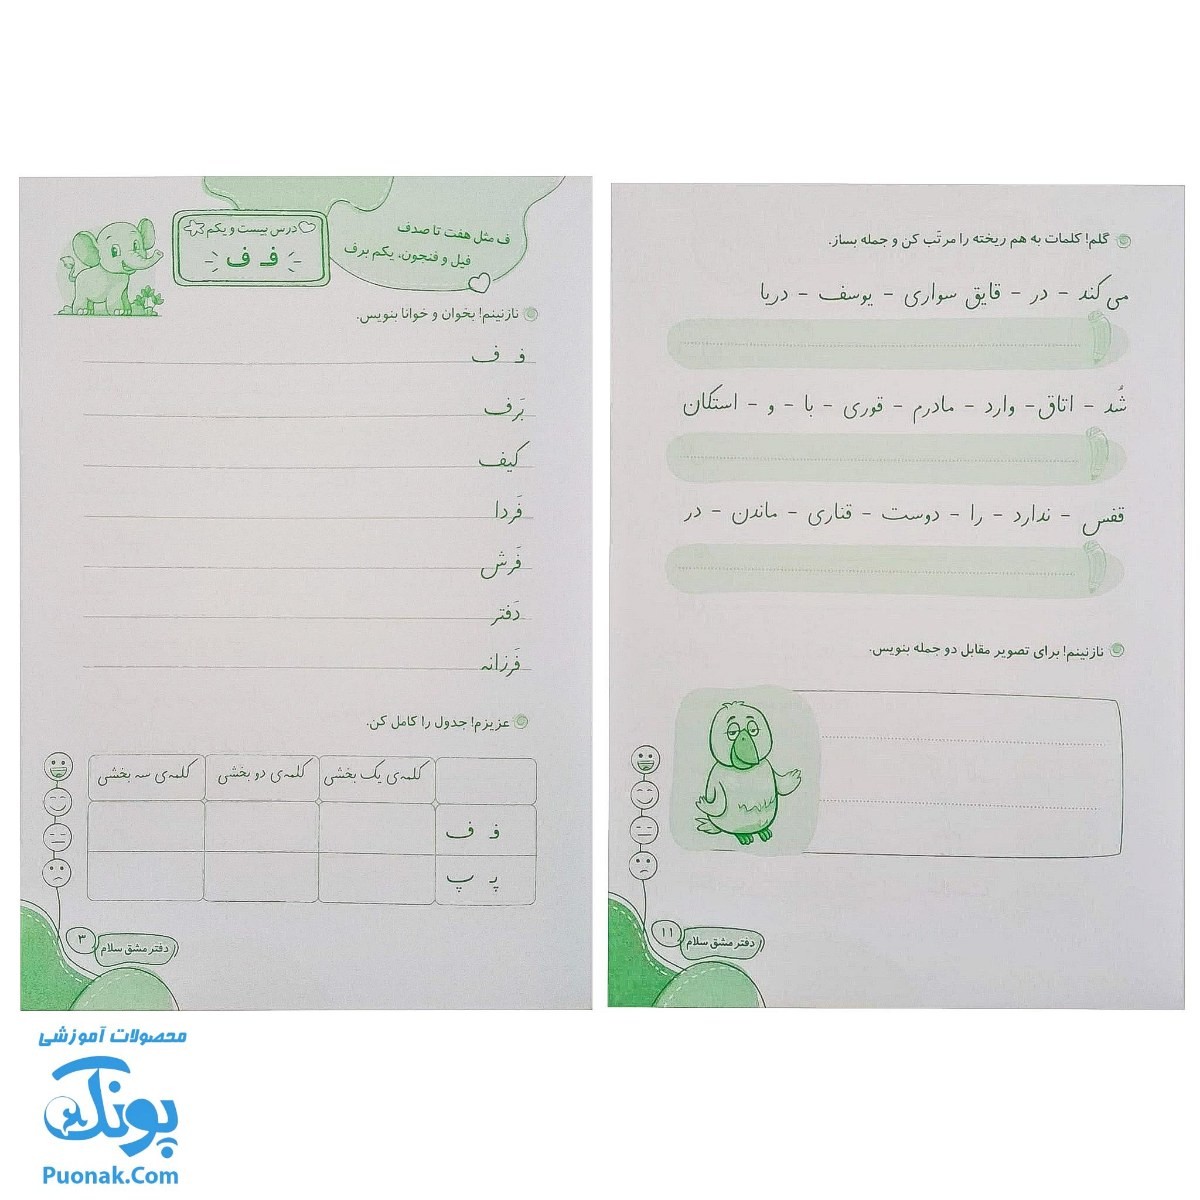 درس بیست و یکم
فـ ف
ف مثل هفت تا صدف
فیل و فنجون، یکم برف
نازنینم! بخوان و خوانا بنویس.
فـ ف
بَرف
کیف
فَردا
فَرش
دَفتر
فَرزانه
عزیزم! جدول را کامل کن.
کلمه‌ی یک بخشی کلمه‌ی دو بخشی کلمه‌ی سه بخشی
فـ ف
پـ پ
۳
دفتر مشق سلام
گلم! کلمات به هم ریخته را مرتّب کن و جمله بساز.
می کند - در - قایق سواری - یوسف - دریا
شُد - اتاق - وارد - مادرم - قوری - با - و - استکان
قفس - ندارد - را - دوست - قناری - ماندن - در
نازنینم! برای تصویر مقابل دو جمله بنویس.
۱۱
دفتر مشق سلام
محصولات آموزشی
پونک
Puonak.Com